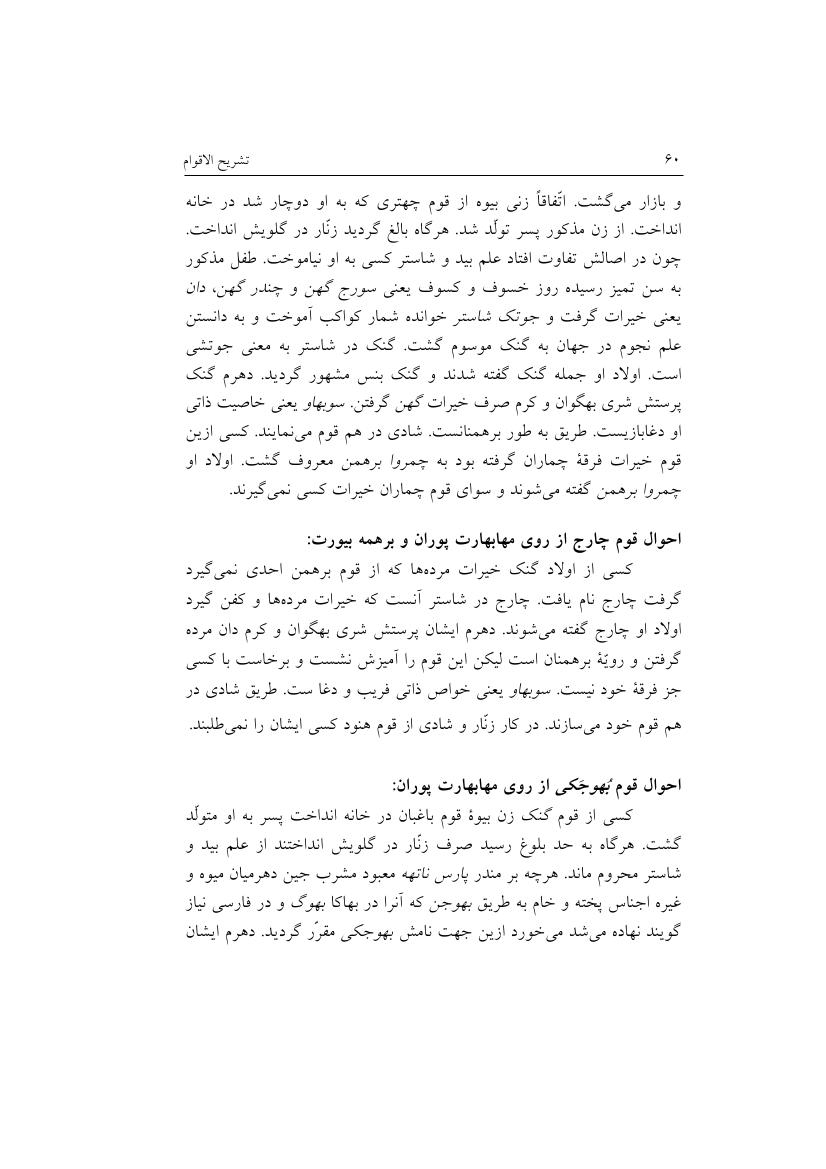 ۶۰ تشریح الاقوام
و بازار می‌گشت. اتّفاقاً زنی بیوه از قوم چهتری که به او دوچار شد در خانه
انداخت. از زن مذکور پسر تولّد شد. هرگاه بالغ گردید زنّار در گلویش انداخت.
چون در اصالش تفاوت افتاد علم بید و شاستر کسی به او نیاموخت. طفل مذکور
به سن تمیز رسیده روز خسوف و کسوف یعنی سورج گهن و چندر گهن، دان
یعنی خیرات گرفت و جوتک شاستر خوانده شمار کواکب آموخت و به دانستن
علم نجوم در جهان به گنک موسوم گشت. گنک در شاستر به معنی جوتشی
است. اولاد او جمله گنک گفته شدند و گنک بنس مشهور گردید. دهرم گنک
پرستش شری بهگوان و کرم صرف خیرات گهن گرفتن. سوبهاو یعنی خاصیت ذاتی
او دغابازیست. طریق به طور برهمنانست. شادی در هم قوم می‌نمایند. کسی ازین
قوم خیرات فرقۀ چماران گرفته بود به چمروا برهمن معروف گشت. اولاد او
چمروا برهمن گفته می‌شوند و سوای قوم چماران خیرات کسی نمی‌گیرند.
احوال قوم چارج از روی مهابهارت پوران و برهمه بیورت:
کسی از اولاد گنک خیرات مرده‌ها که از قوم برهمن احدی نمی‌گیرد
گرفت چارج نام یافت. چارج در شاستر آنست که خیرات مرده‌ها و کفن گیرد
اولاد او چارج گفته می‌شوند. دهرم ایشان پرستش شری بهگوان و کرم دان مرده
گرفتن و رویّۀ برهمنان است لیکن این قوم را آمیزش نشست و برخاست با کسی
جز فرقۀ خود نیست. سوبهاو یعنی خواص ذاتی فریب و دغا ست. طریق شادی در
هم قوم خود می‌سازند. در کار زنّار و شادی از قوم هنود کسی ایشان را نمی‌طلبند.
احوال قوم بُهوجَکی از روی مهابهارت پوران:
کسی از قوم گنک زن بیوۀ قوم باغبان در خانه انداخت پسر به او متولّد
گشت. هرگاه به حد بلوغ رسید صرف زنّار در گلویش انداختند از علم بید و
شاستر محروم ماند. هرچه بر مندر پارس ناتهه معبود مشرب جین دهرمیان میوه و
غیره اجناس پخته و خام به طریق بهوجن که آنرا در بهاکا بهوگ و در فارسی نیاز
گویند نهاده می‌شد می‌خورد ازین جهت نامش بهوجکی مقرّر گردید. دهرم ایشان